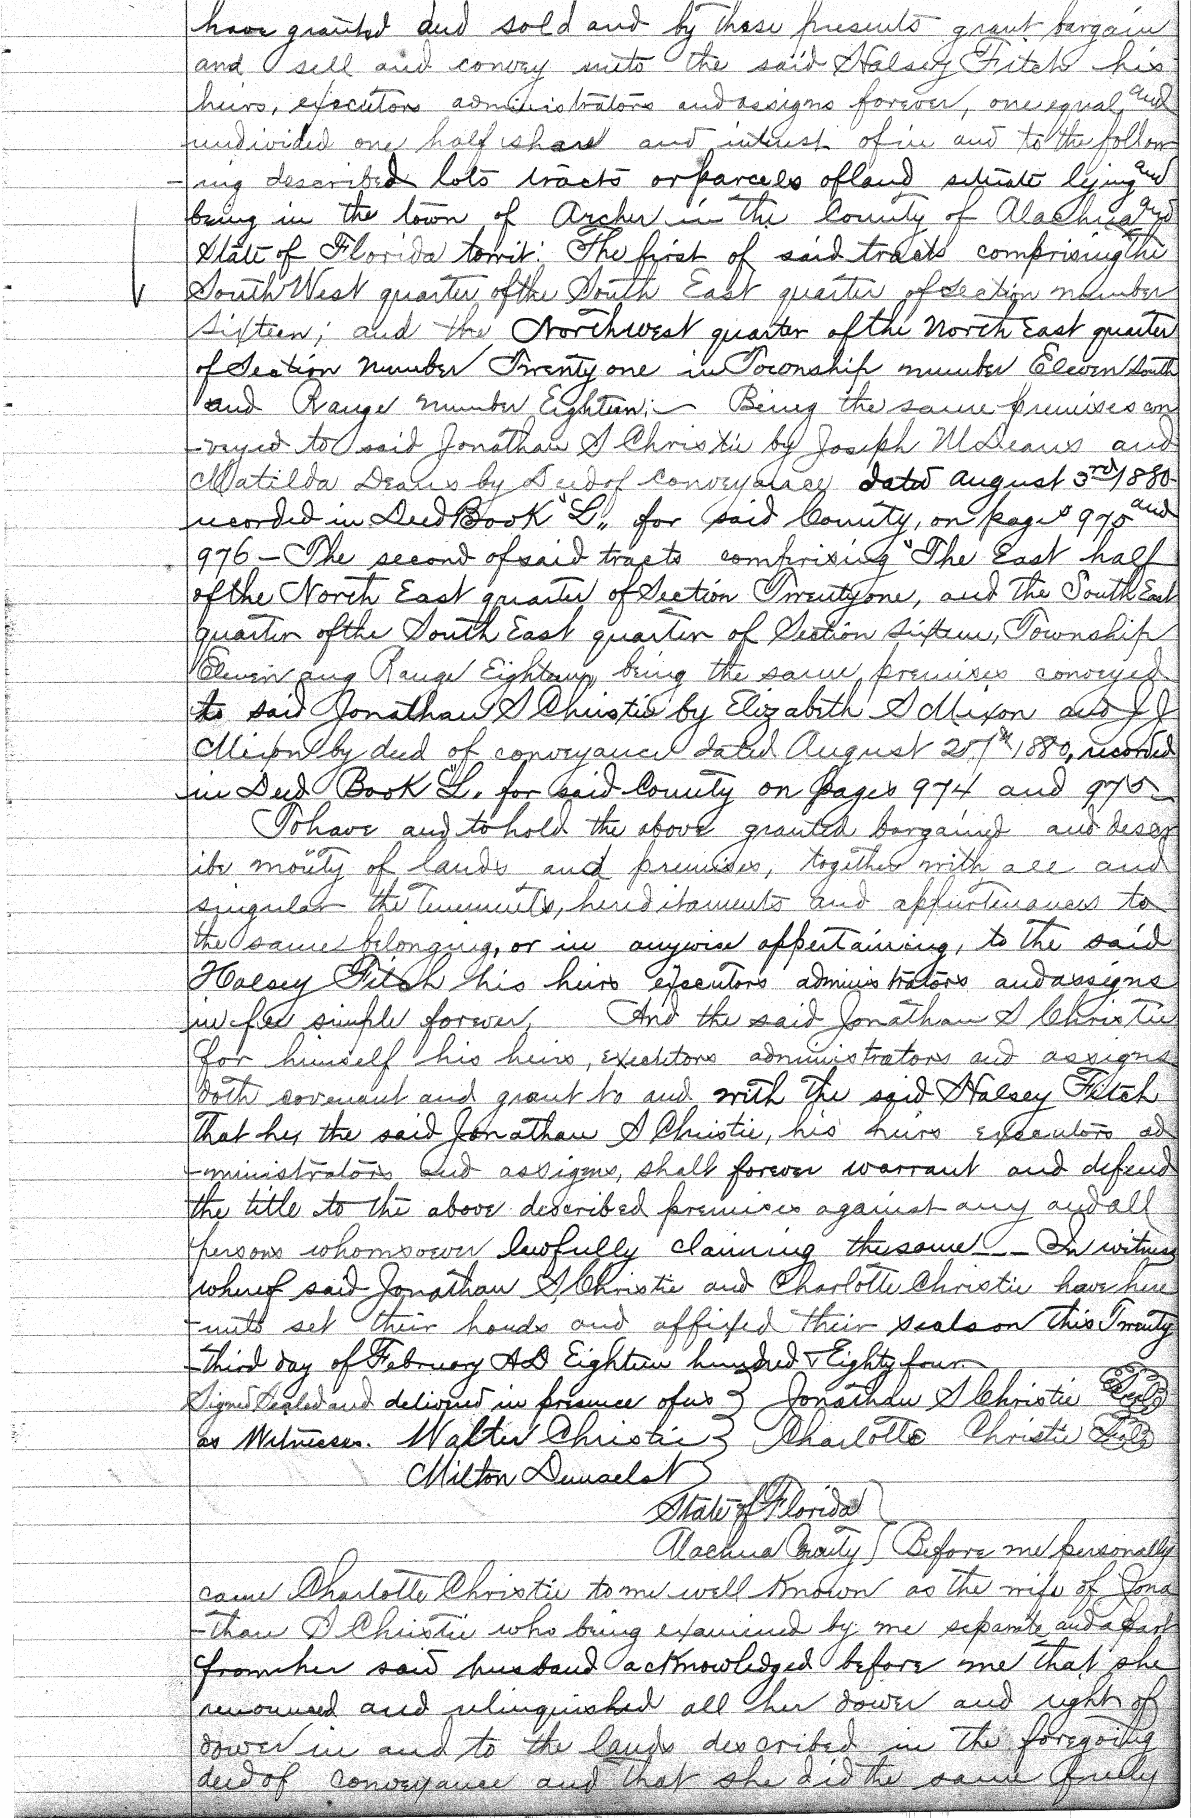 have granted and sold and by these presents grant bargain
and sell and convey unto the said Halsey Fitch his
heirs, executors administrators and assigns forever, one equal and
undivided one half share and interest of in and to the follow
-ing described lots tracts or parcels of land situate lying and
being in the town of Archer in the County of Alachua and
State of Florida towit: The first of said tracts comprising the
South West quarter of the South East quarter of section number
sixteen; and the Northwest quarter of the North East quarter
of Section number Twenty one in Township number Eleven South
and Range number Eighteen; Being the same premises con
-veyed to said Jonathan S Christie by Joseph M Deans and
Matilda Deans by Deed of Conveyance dated August 3rd 1880
recorded in Deed Book "L" for said County, on pages 975 and
976 - The second of said tracts comprising "The East half
of the North East quarter of Section Twenty one, and the South East
quarter of the South East quarter of Section sixteen, Township
Eleven ang Range Eighteen, being the same premises conveyed
to said Jonathan S Christie by Elizabeth S Mixon and J J
Mixon by deed of conveyance dated August 25th 1880, recorded
in Deed Book "L" for said County on pages 974 and 975
To have and to hold the above granted bargained and descr
ibe moiety of lands and premises, together with all and
singular the Tenements, hereditaments and appurtenances to
the same belonging, or in anywise appertaining, to the said
Halsey Fitch his heirs executors administrators and assigns
in fee simple forever, And the said Jonathan S Christie
for himself his heirs, executors administrators and assigns
doth covenant and grant to and with the said Halsey Fitch
That he, the said Jonathan S Christie, his heirs executors ad
-ministrators and assigns, shall forever warrant and defend
the title to the above described premises against any and all
persons whomsoever lawfully claiming the same -- In witness
whereof said Jonathan S Christie and Charlotte Christie have here
-unto set their hands and affixed their seals on this Twenty
-third day of February AD Eighteen hundred & Eighty four
Signed Sealed and delivered in presence of us } Jonathan S Christie Seal
as Witnesses. Walter Christie } Charlotte Christie Seal
Milton }
State of Florida }
Alachua County } Before me personally
came Charlotte Christie to me well known as the wife of Jona
-than S Christie who being examined by me separate and apart
from her said husband acknowledged before me that she
renounced and relinquished all her dower and right of
dower in and to the lands described in the foregoing
deed of conveyance and that she did the same freely